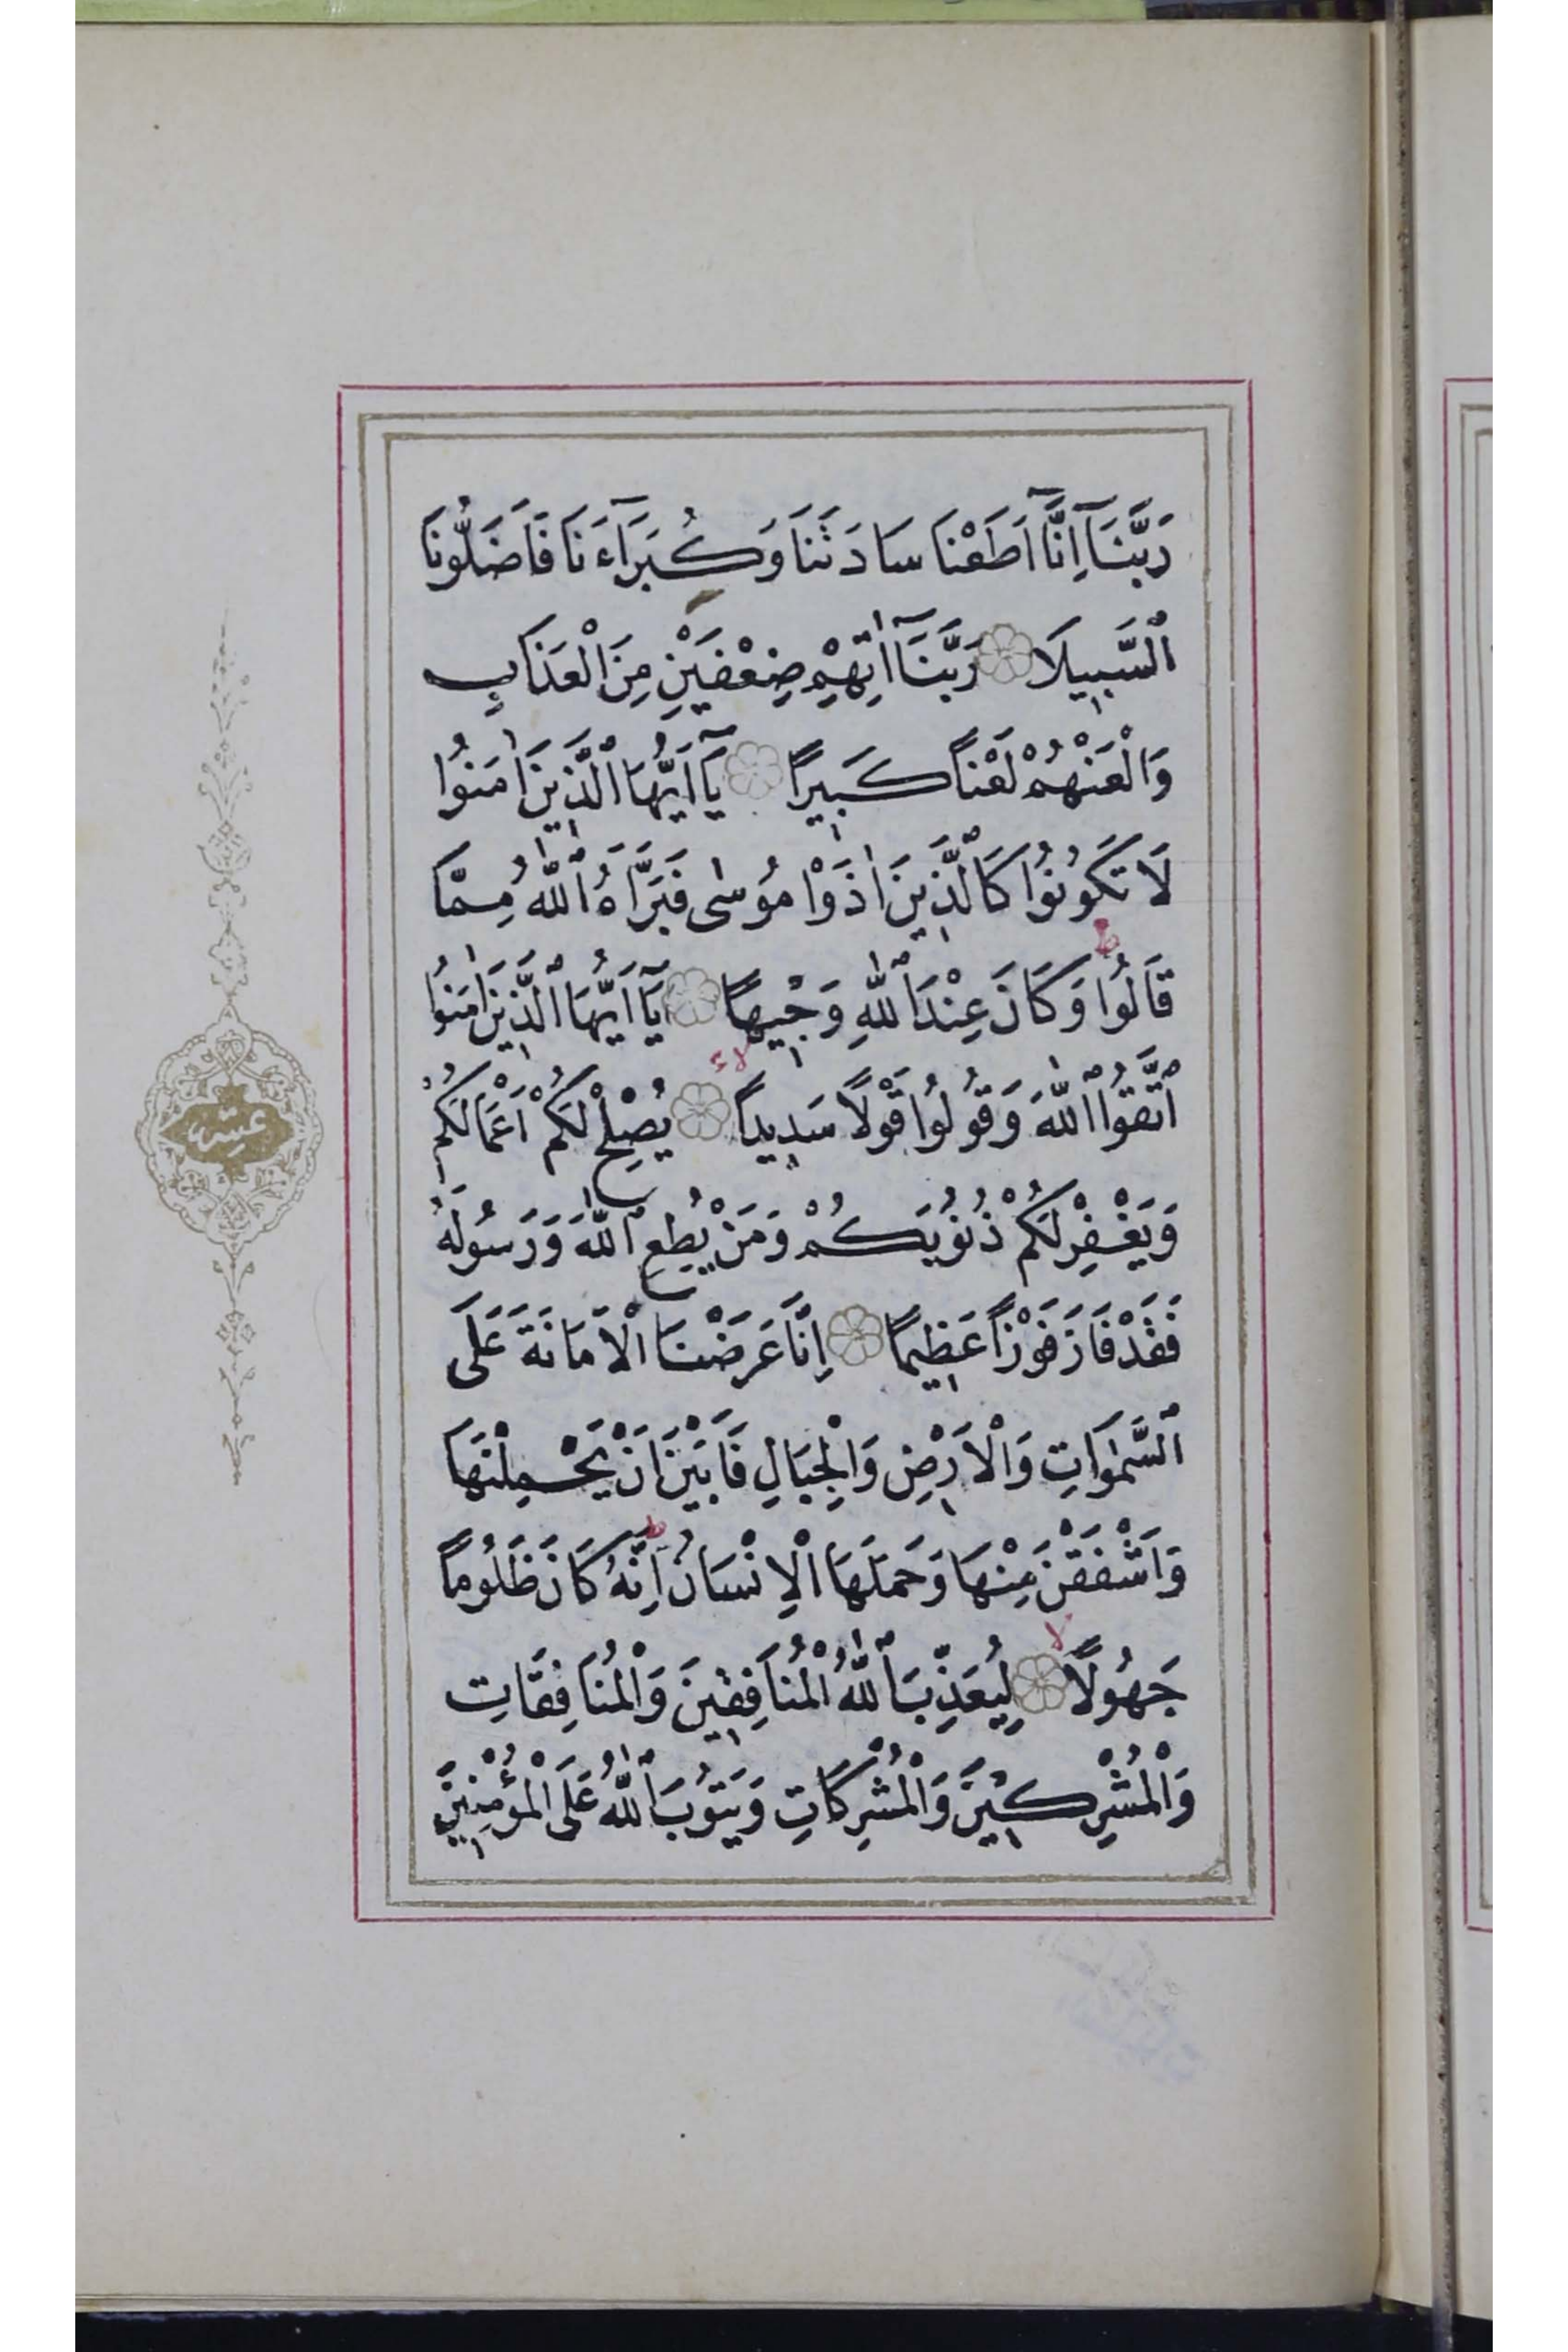 رَبَّنَآ اِنَّآ اَطَعْنَا سَادَتَنَا وَكُبَرَآءَنَا فَاَضَلُّونَا
ٱلسَّبِيلَا رَبَّنَآ اٰتِهِمْ ضِعْفَيْنِ مِنَ الْعَذَابِ
وَالْعَنْهُمْ لَعْنًا كَبِيرًا يَآ اَيُّهَا ٱلَّذِينَ اٰمَنُوا
لَا تَكُونُوا كَٱلَّذِينَ اٰذَوْا مُوسٰى فَبَرَّاَهُ ٱللّٰهُ مِمَّا
قَالُوا ط وَكَانَ عِنْدَ ٱللّٰهِ وَجِيهًا يَآ اَيُّهَا ٱلَّذِينَ اٰمَنُوا
ٱتَّقُوا ٱللّٰهَ وَقُولُوا قَوْلًا سَدِيدًا لا يُصْلِحْ لَكُمْ اَعْمَالَكُمْ
وَيَغْفِرْ لَكُمْ ذُنُوبَكُمْ وَمَنْ يُطِعِ ٱللّٰهَ وَرَسُولَهُ
فَقَدْ فَازَ فَوْزًا عَظِيمًا اِنَّا عَرَضْنَا الْاَمَانَةَ عَلَى
ٱلسَّمٰوَاتِ وَالْاَرْضِ وَالْجِبَالِ فَاَبَيْنَ اَنْ يَحْمِلْنَهَا
وَاَشْفَقْنَ مِنْهَا وَحَمَلَهَا الْاِنْسَانُ ط اِنَّهُ كَانَ ظَلُومًا
جَهُولًا لا لِيُعَذِّبَ ٱللّٰهُ الْمُنَافِقِينَ وَالْمُنَافِقَاتِ
وَالْمُشْرِكِينَ وَالْمُشْرِكَاتِ وَيَتُوبَ ٱللّٰهُ عَلَى الْمُؤْمِنِينَ
عشر